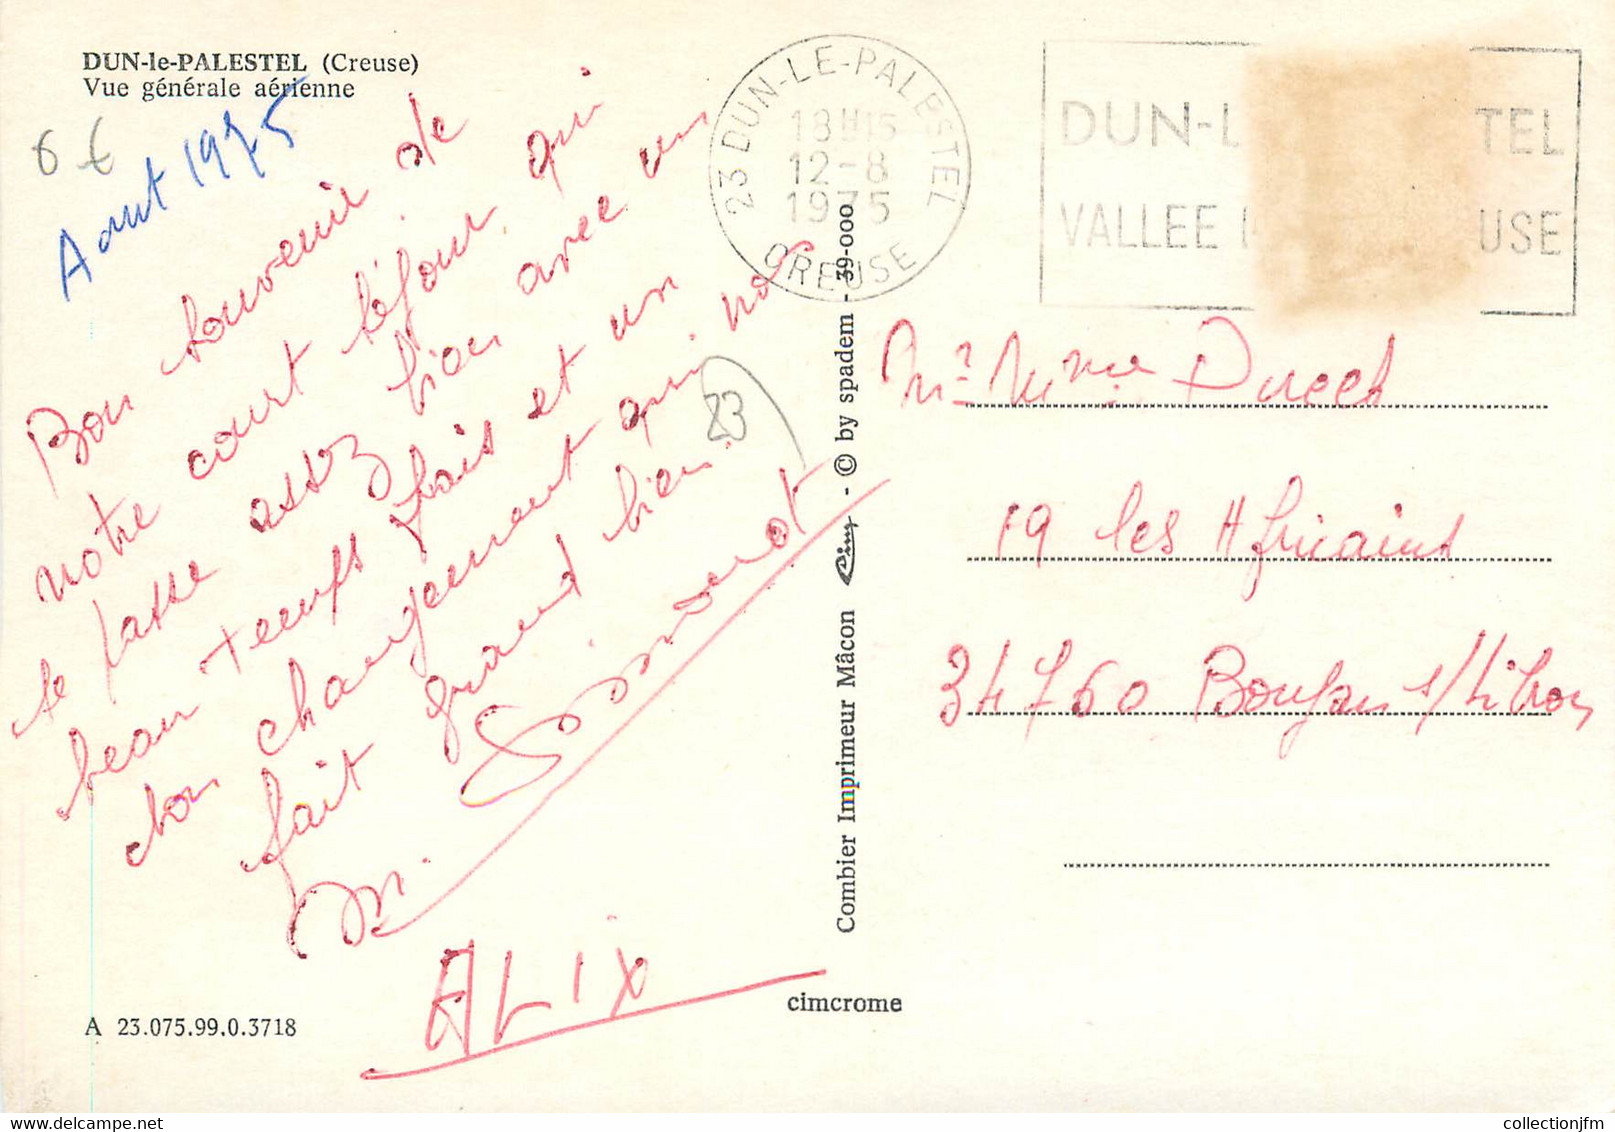 DUN-le-PALESTEL (Creuse)
Vue générale aérienne
6 €
Aout 1975
Bon souvenir de
notre court séjour qui
se passe assez bien avec un
beau temps frais et un
bon changement qui nous
fait grand bien.
M. Simonot
ALIX
A 23.075.99.0.3718
cimcrome
23
Combier Imprimeur Mâcon Cim - © by spadem - 39-000
23 DUN-LE-PALESTEL
18H15
12-8
1975
CREUSE
DUN-L TEL
VALLEE USE
Mr Mme Ducet
19 les Africains
34760 Boujan s/Libron
collectionjfm